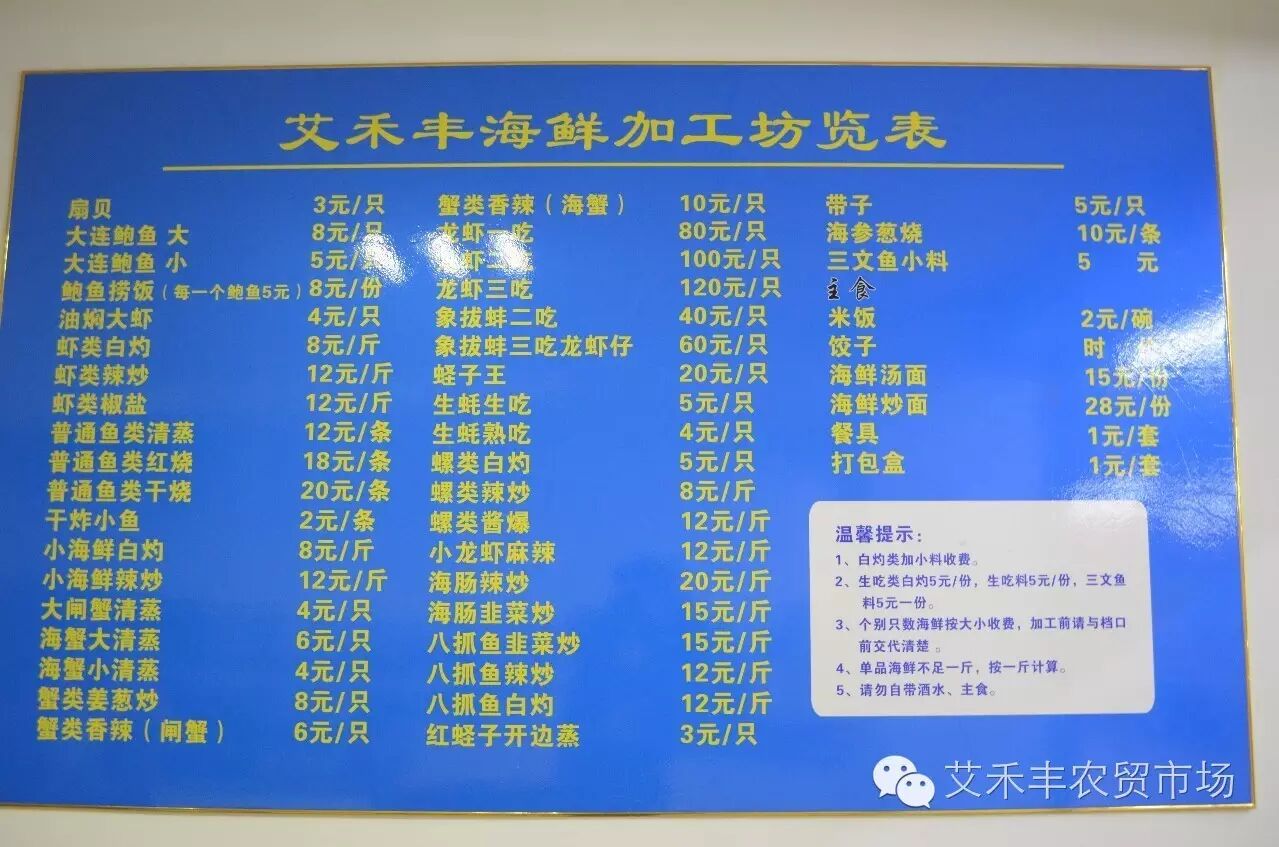 艾禾丰海鲜加工坊览表
扇贝 3元/只
大连鲍鱼 大 8元/只
大连鲍鱼 小 5元/
鲍鱼捞饭（每一个鲍鱼5元） 8元/份
油焖大虾 4元/只
虾类白灼 8元/斤
虾类辣炒 12元/斤
虾类椒盐 12元/斤
普通鱼类清蒸 12元/条
普通鱼类红烧 18元/条
普通鱼类干烧 20元/条
干炸小鱼 2元/条
小海鲜白灼 8元/斤
小海鲜辣炒 12元/斤
大闸蟹清蒸 4元/只
海蟹大清蒸 6元/只
海蟹小清蒸 4元/只
蟹类姜葱炒 8元/只
蟹类香辣（闸蟹） 6元/只
蟹类香辣（海蟹） 10元/只
龙虾一吃 80元/只
虾二 100元/只
龙虾三吃 120元/只
象拔蚌二吃 40元/只
象拔蚌三吃龙虾仔 60元/只
蛏子王 20元/只
生蚝生吃 5元/只
生蚝熟吃 4元/只
螺类白灼 5元/只
螺类辣炒 8元/斤
螺类酱爆 12元/斤
小龙虾麻辣 12元/斤
海肠辣炒 20元/斤
海肠韭菜炒 15元/斤
八抓鱼韭菜炒 15元/斤
八抓鱼辣炒 12元/斤
八抓鱼白灼 12元/斤
红蛏子开边蒸 3元/只
带子 5元/只
海参葱烧 10元/条
三文鱼小料 5 元
主食
米饭 2元/碗
饺子 时
海鲜汤面 15元/份
海鲜炒面 28元/份
餐具 1元/套
打包盒 1元/套
温馨提示：
1、白灼类加小料收费。
2、生吃类白灼5元/份，生吃料5元/份，三文鱼
料5元一份。
3、个别只数海鲜按大小收费，加工前请与档口
前交代清楚 。
4、单品海鲜不足一斤，按一斤计算。
5、请勿自带酒水、主食。
艾禾丰农贸市场